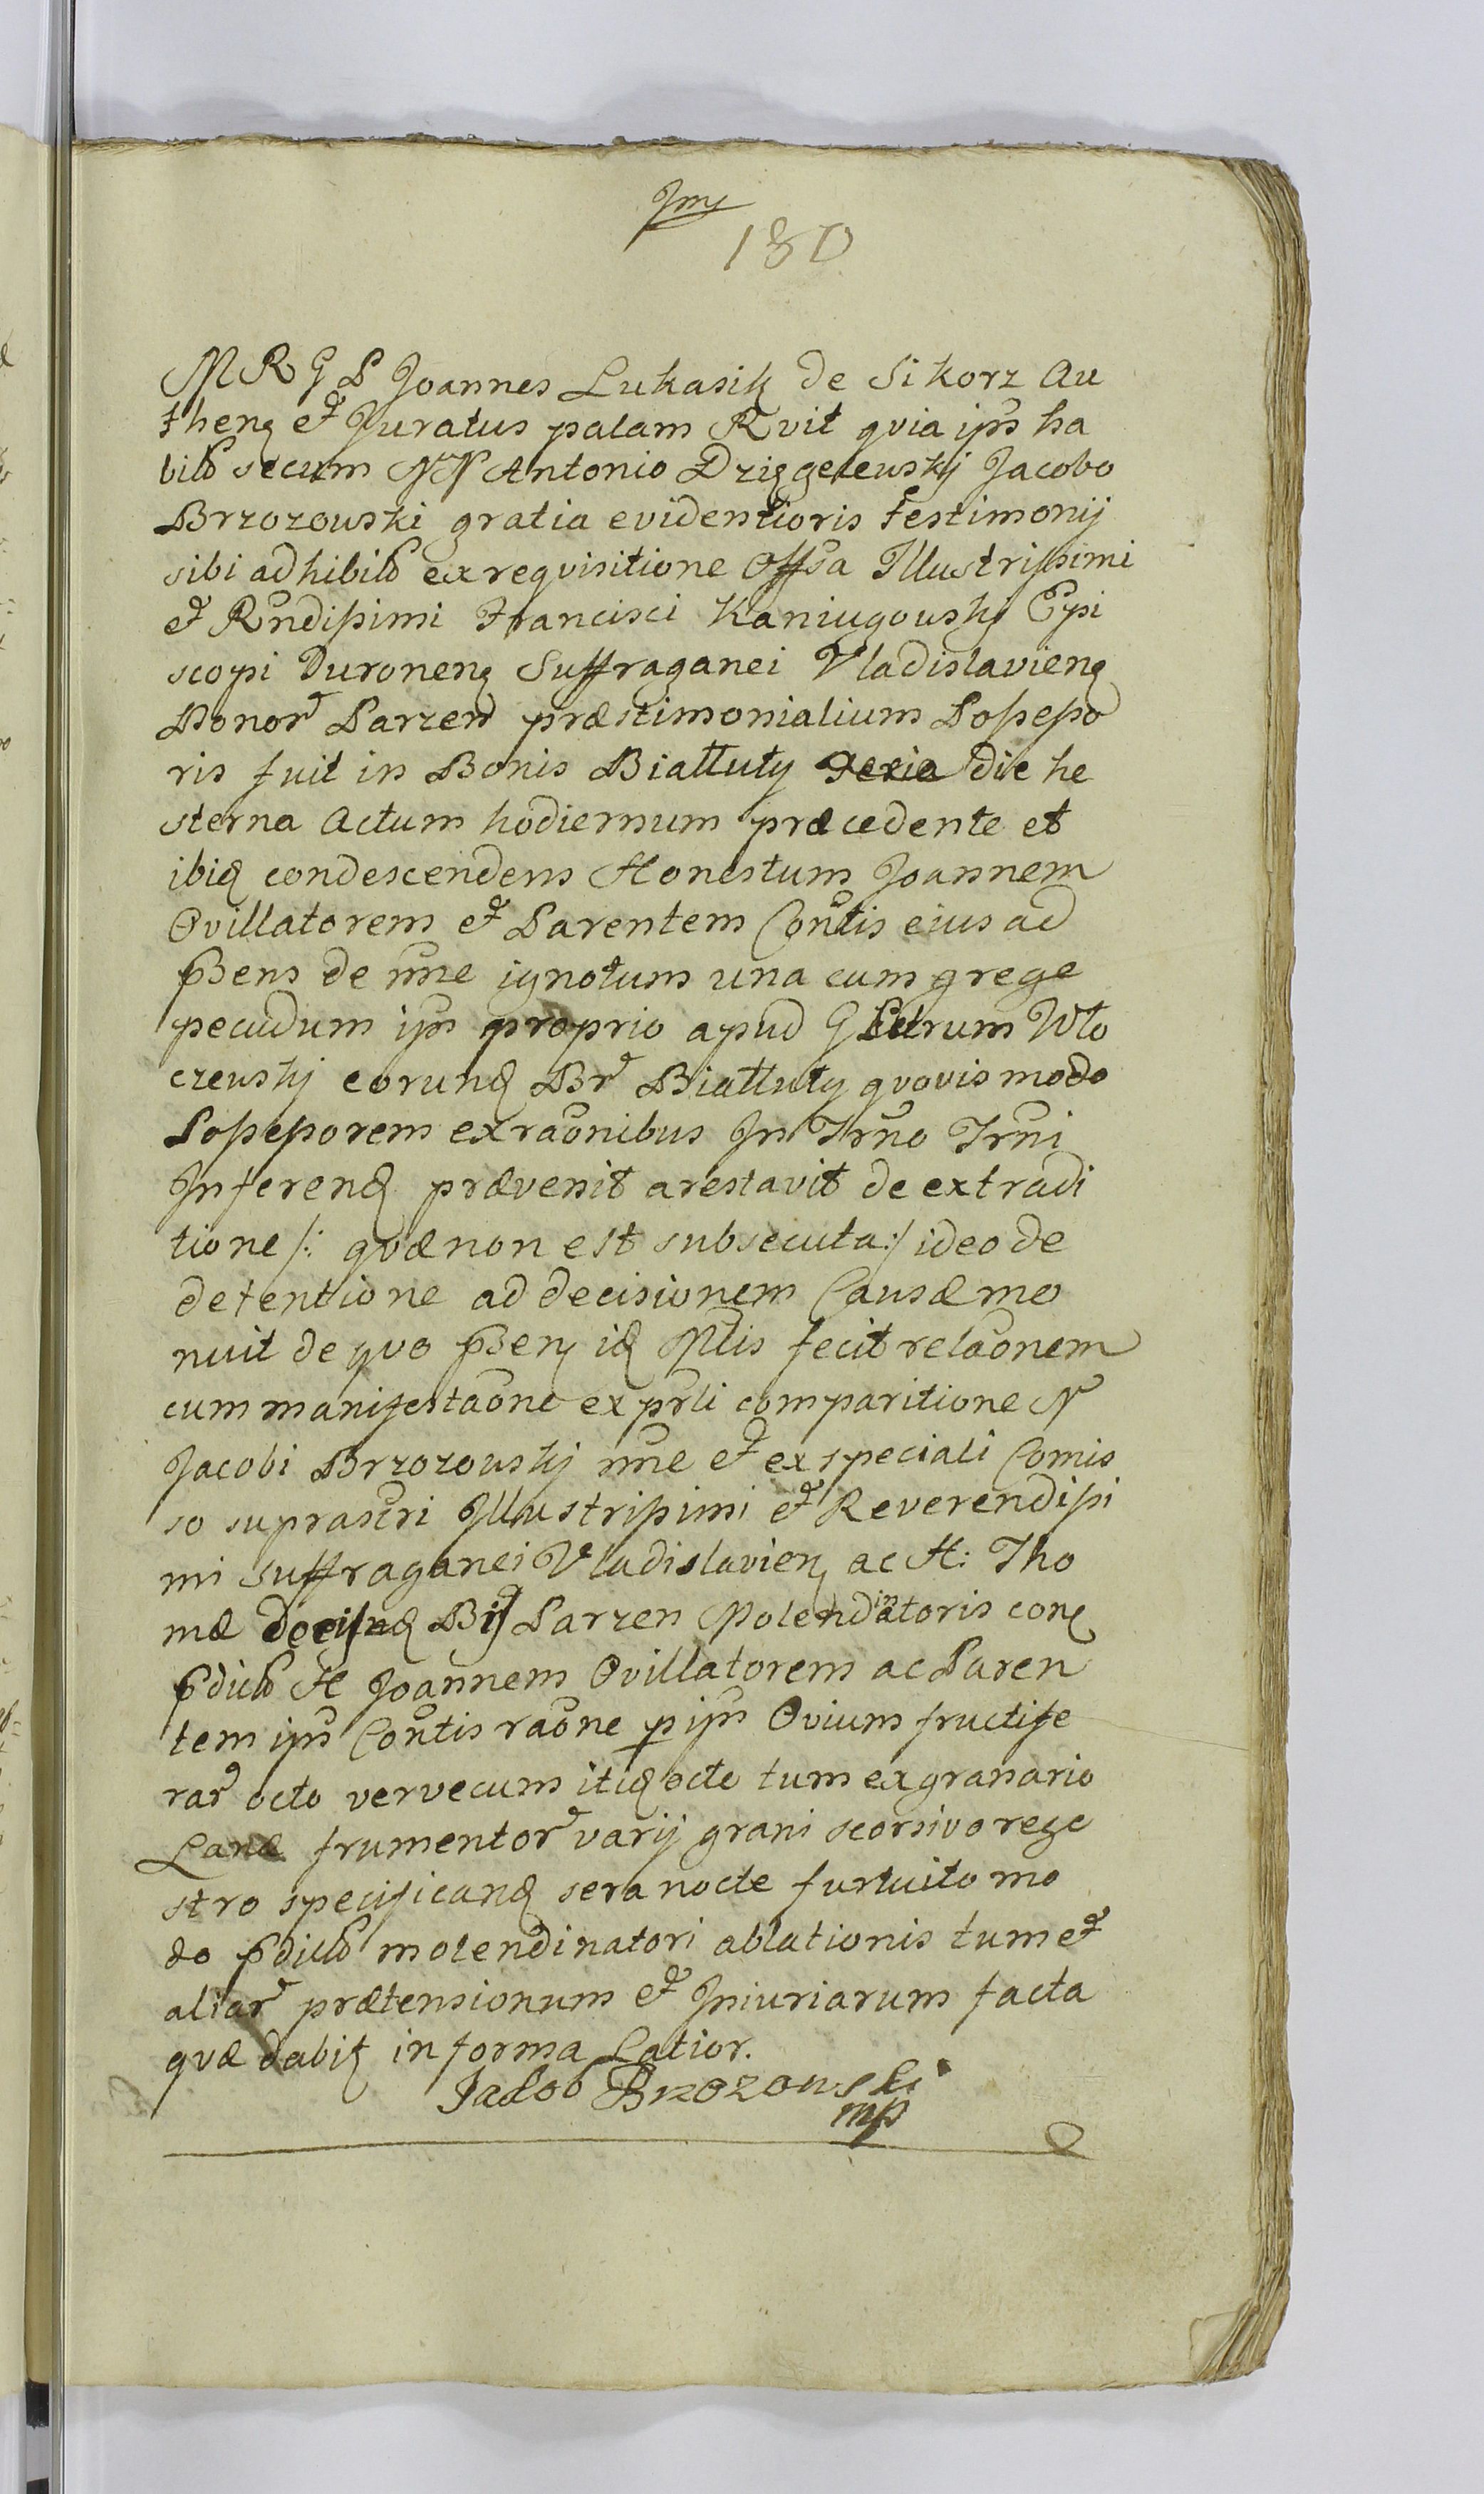 Jmy
180
M R G P Joannes Lukasik de Sikorz Au
theng et Juratus palam Rvit qvia ips ha
bitis secum NN Antonio Dziggelewskj Jacobo
Brzozowski gratia evidentioris testimonij
sibi adhibitis ex reqvisitione Offsa Illustrissimi
et Rndissimi Francisci Kaniugowskj Epi
scopi Duroneng Suffraganei Vladislavieng
Bonor Parzen præstimonialium Possesso
ris fuit in Bonis Białłuty die he
sterna Actum hodiernum præcedente et
ibiq condescendens Honestum Joannem
Ovillatorem et Parentem Contis eius ad
psens de nne ignotum una cum grege
pecudum ips proprio apud G Petrum Wło
czewskj eorunq Br Białłuty qvovis modo
Possessorem ex raonibus In Trno Trni
Inferenq prævenit arestavit de extradi
tione /: qvæ non est subsecuta :/ ideo de
detentione ad decisionem Causæ mo
nuit de qvo psens iq Mlis fecit relaonem
cum manifestaone ex prli comparitione N
Jacobi Brzozowskj nne et ex speciali Comis
so suprastri Illustrissimi et Reverendissi
mi Suffraganei Vladislavien ac H: Tho
mæ Br Parzen Molendinatoris cong
pdictum H Joannem Ovillatorem ac Paren
tem ips Contis raone p ips Ovium fructife
rar octo vervecum itiq octo tum ex granario
Lanæ frumentor varij grani seorsivo rege
stro specificanq sera nocte furtuito mo
do pdicto molendinatori ablationis tum et
aliar prætensionum et Iniuriarum facta
qvæ dabit in forma Latior.
Jacob Brzozowski
mp